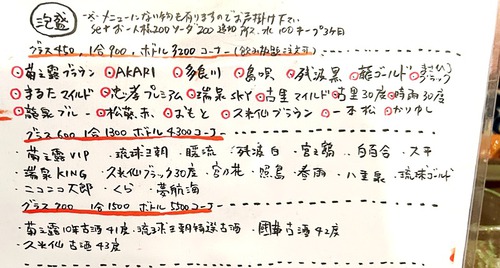 泡盛
※メニューにない物も有りますのでお声掛け下さい
セットお一人様200 ソーダ200 追加 氷 水100 キープ3ヶ月
グラス450, 1合900, ボトル3200コーナー(飲み放題注文可)
菊之露ブラウン AKARI 多良川 島唄 残波黒 ゴールド まさひろブラック
まるたマイルド 忠孝プレミアム 瑞泉SKY 古里マイルド 古里30度 時雨30度
龍泉ブルー 松藤.赤 おもと 久米仙ブラウン 一本松 かりゆし
グラス600 1合1300 ボトル4300コーナ
菊之露VIP ・琉球王朝 ・暖流 ・残波白 ・宮之鶴 ・白百合 ・太平
・瑞泉KING ・久米仙ブラック30度 ・宮の花 ・照島 ・春雨 ・八重泉 ・琉球ゴールド
・ニコニコ太郎 ・くら ・夢航海
グラス700 1合1500 ボトル5500コーナ
・菊之露10年古酒41度 ・琉球王朝特選古酒 ・國華古酒42度
・久米仙 古酒 43度